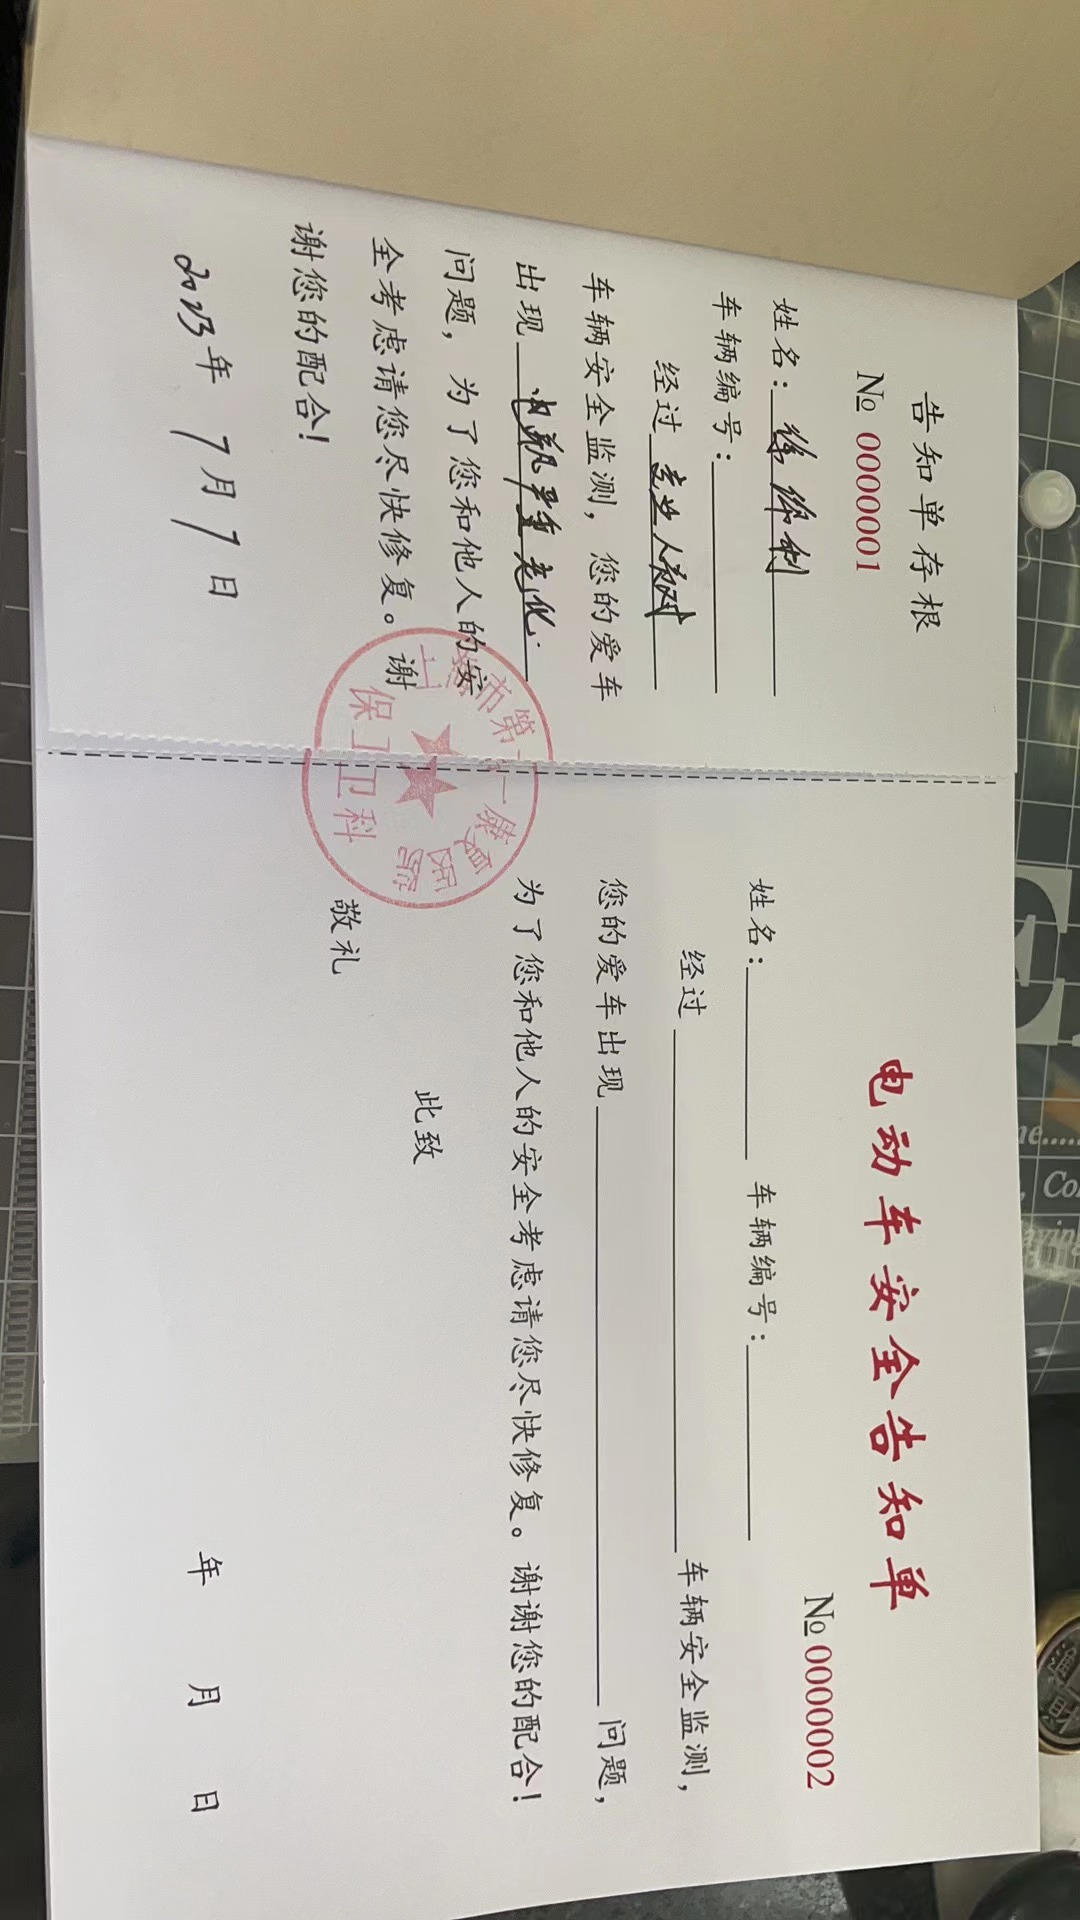 告知单存根
№ 0000001
姓名：徐
车辆编号：
经过 专业人员对
车辆安全监测，您的爱车
出现 电瓶严重老化
问题，为了您和他人的安
全考虑请您尽快修复。谢
谢您的配合！
2023年 7月 7日
市第一
康复医院
保卫科
电动车安全告知单
№ 0000002
姓名： 车辆编号：
经过 车辆安全监测，
您的爱车出现 问题，
为了您和他人的安全考虑请您尽快修复。谢谢您的配合！
此致
敬礼
年 月 日